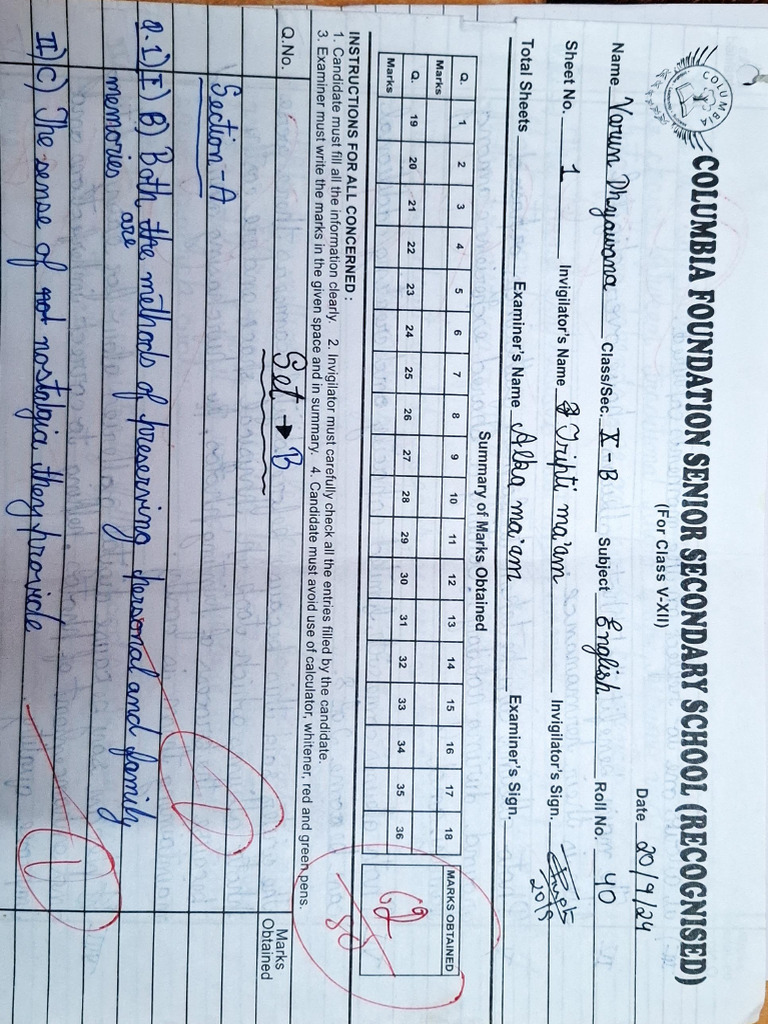 COLUMBIA
COLUMBIA FOUNDATION SENIOR SECONDARY SCHOOL (RECOGNISED)
(For Class V-XII)
Date 20/9/24
Name Varun Dhyawana Class/Sec. X - B Subject English Roll No. 40
Sheet No. 1 Invigilator's Name Tripti ma'am Invigilator's Sign.
20/9
Total Sheets Examiner's Name Alka ma'am Examiner's Sign.
Summary of Marks Obtained
Q. 1 2 3 4 5 6 7 8 9 10 11 12 13 14 15 16 17 18 MARKS OBTAINED
Marks
Q. 19 20 21 22 23 24 25 26 27 28 29 30 31 32 33 34 35 36
Marks
62
80
INSTRUCTIONS FOR ALL CONCERNED :
1. Candidate must fill all the information clearly. 2. Invigilator must carefully check all the entries filled by the candidate.
3. Examiner must write the marks in the given space and in summary. 4. Candidate must avoid use of calculator, whitener, red and green pens.
Q.No. Set → B Marks Obtained
Section-A
Q.1) I) B) Both the methods of preserving personal and family
memories are
1
II) C) The sense of not nostalgia they provide
1